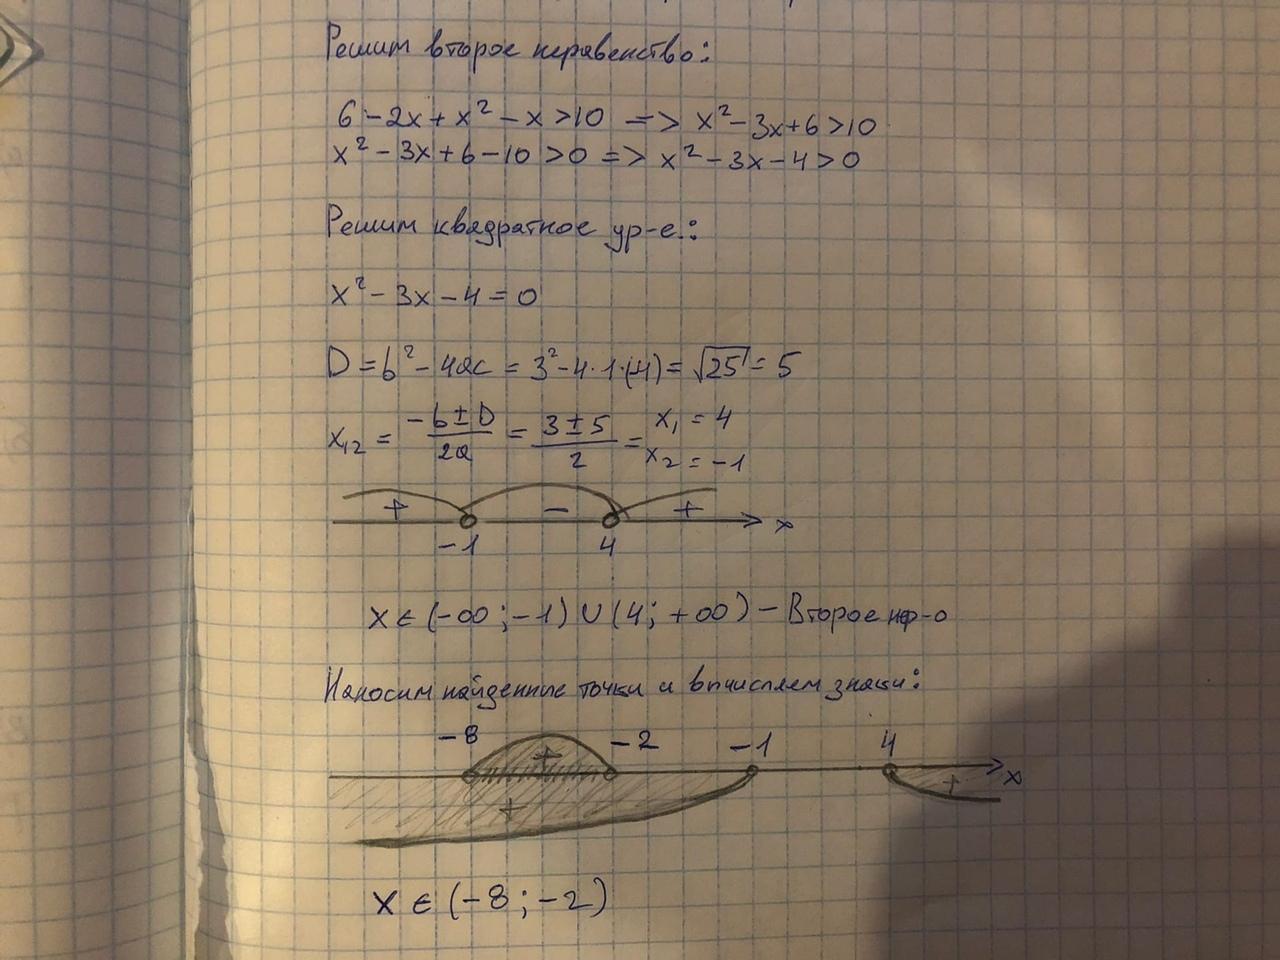 Решим второе неравенство:
6 - 2x + x² - x > 10 => x² - 3x + 6 > 10
x² - 3x + 6 - 10 > 0 => x² - 3x - 4 > 0
Решим квадратное ур-е.:
x² - 3x - 4 = 0
D = b² - 4ac = 3² - 4·1·(-4) = √25 = 5
x₁₂ = (-b ± D)/(2a) = (3 ± 5)/2 = x₁ = 4
x₂ = -1
+ - +
-1 4 x
x ∈ (-∞; -1) ∪ (4; +∞) - Второе нер-о
Наносим найденные точки и вычисляем знаки:
-8 -2 -1 4
+ + x
+
x ∈ (-8; -2)